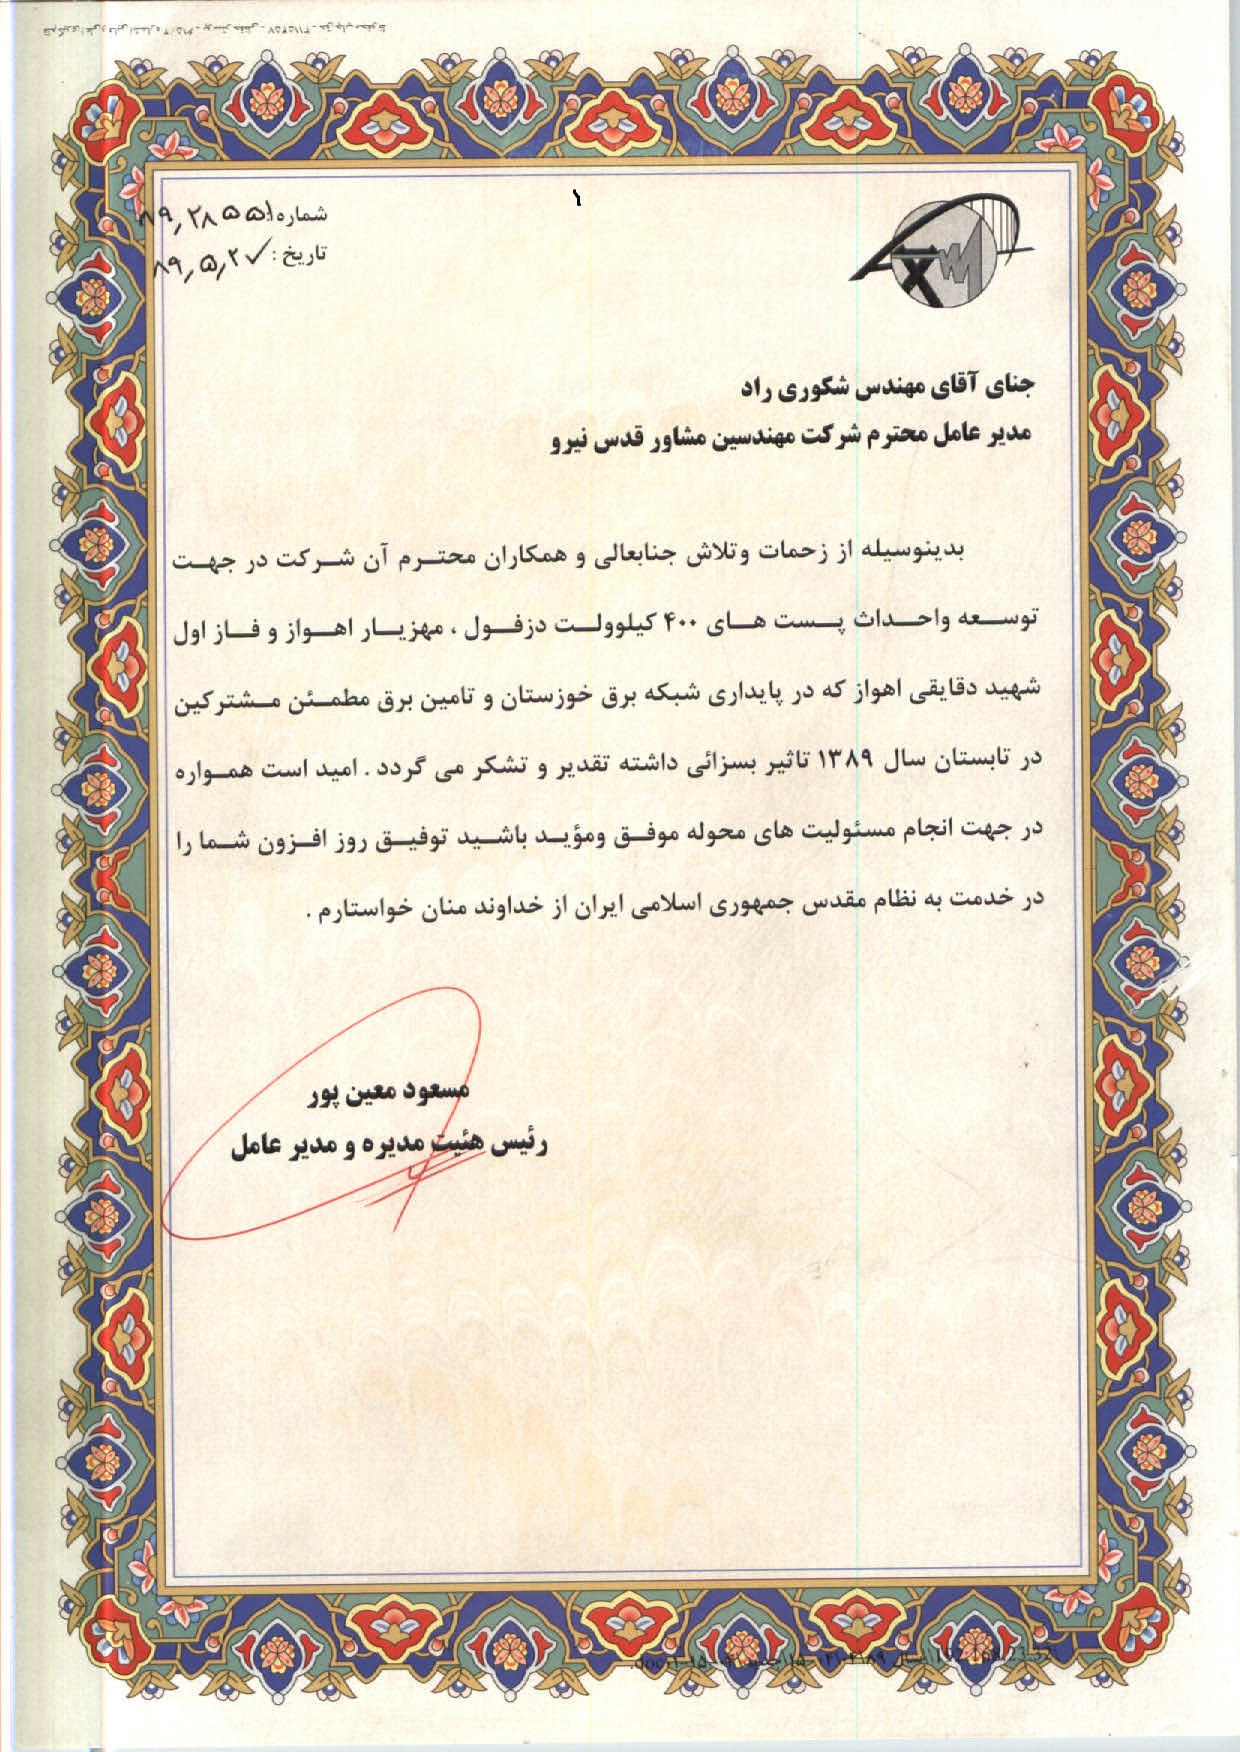 شماره: ۸۹٫۲۸۵۵۱
تاریخ: ۸۹٫۵٫۲۷
جنای آقای مهندس شکوری راد
مدیر عامل محترم شرکت مهندسین مشاور قدس نیرو
بدینوسیله از زحمات وتلاش جنابعالی و همکاران محترم آن شرکت در جهت
توسعه واحداث پست های ۴۰۰ کیلوولت دزفول ، مهزیار اهواز و فاز اول
شهید دقایقی اهواز که در پایداری شبکه برق خوزستان و تامین برق مطمئن مشترکین
در تابستان سال ۱۳۸۹ تاثیر بسزائی داشته تقدیر و تشکر می گردد . امید است همواره
در جهت انجام مسئولیت های محوله موفق ومؤید باشید توفیق روز افزون شما را
در خدمت به نظام مقدس جمهوری اسلامی ایران از خداوند منان خواستارم .
مسعود معین پور
رئیس هئیت مدیره و مدیر عامل